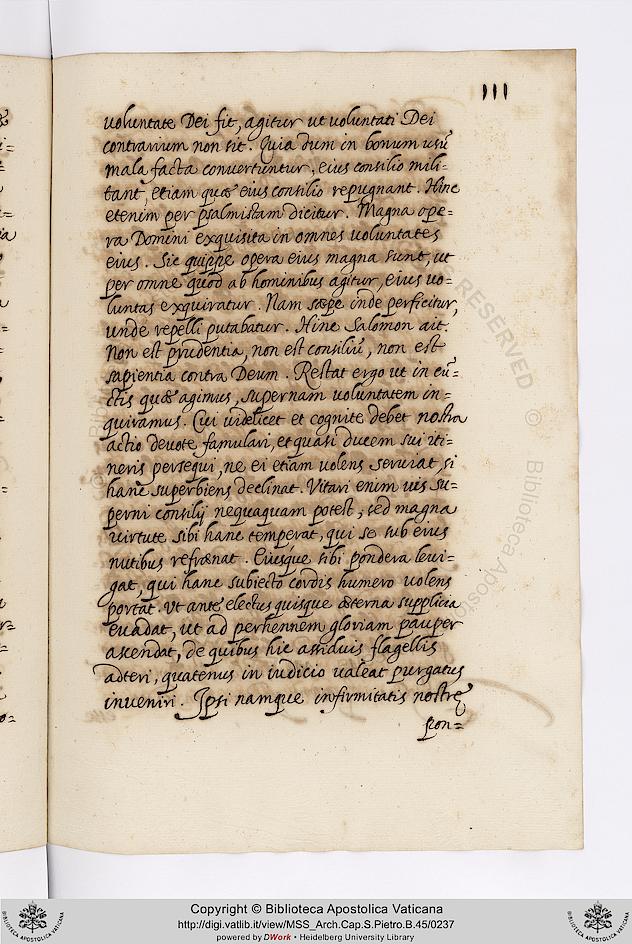 111
voluntate Dei fit, agitur ut voluntati Dei
contrarium non sit. Quia dum in bonum usũ
mala facta convertuntur, eius consilio mili=
tant, etiam quæ eius consilio repugnant. Hinc
etenim per psalmistam dicitur. Magna ope=
ra Domini exquisita in omnes voluntates
eius. Sic quippe opera eius magna sunt, ut
per omne quod ab hominibus agitur, eius vo=
luntas exquiratur. Nam sæpe inde perficitur,
unde repelli putabatur. Hinc Salomon ait.
Non est prudentia, non est consiliũ, non est
sapientia contra Deum. Restat ergo ut in cũ=
ctis quæ agimus, supernam voluntatem in=
quiramus. Cui videlicet et cognite debet nostra
actio devote famulari, et quasi ducem sui iti=
neris persequi, ne ei etiam volens serviat, si
hanc superbiens declinat. Vitari enim vis su=
perni consilij nequaquam potest, sed magna
virtute sibi hanc temperat, qui se sub eius
nutibus refrænat. Eiusque sibi pondera levi=
gat, qui hanc subiecto cordis humero volens
portat. Ut ante electus quisque æterna supplicia
evadat, ut ad perhennem gloriam pauper
ascendat, de quibus hic assiduis flagellis
adteri, quatenus in iudicio valeat purgatus
inveniri. Ipsi namque infirmitatis nostrę
pon=
RESERVED © Biblioteca Aposto
Copyright © Biblioteca Apostolica Vaticana
http://digi.vatlib.it/view/MSS_Arch.Cap.S.Pietro.B.45/0237
powered by DWork • Heidelberg University Library